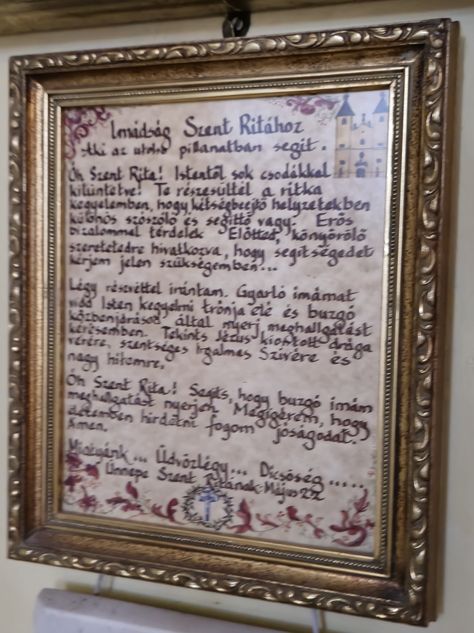 Imádság Szent Ritához
Aki az utolsó pillanatban segít.
Óh Szent Rita! Istentől sok csodákkal
kitüntetve! Te részesültél a ritka
kegyelemben, hogy kétségbeejtő helyzetekben
különös szószóló és segítő vagy. Erős
bizalommal térdelek Előtted, könyörölő
szeretetedre hivatkozva, hogy segítségedet
kérjem jelen szükségemben...
Légy részvéttel irántam. Gyarló imámat
vidd Isten kegyelmi trónja elé és buzgó
közbenjárásod által nyerj meghallgatást
kérésemben. Tekints Jézus kiontott drága
vérére, szentséges Irgalmas Szívére és
nagy hitemre.
Óh Szent Rita! Segíts, hogy buzgó imám
meghallgatást nyerjen. Megígérem, hogy
életemben hirdetni fogom jóságodat.
Ámen.
Miatyánk... Üdvözlégy... Dicsőség.....
Ünnepe Szent Ritának-Május 22